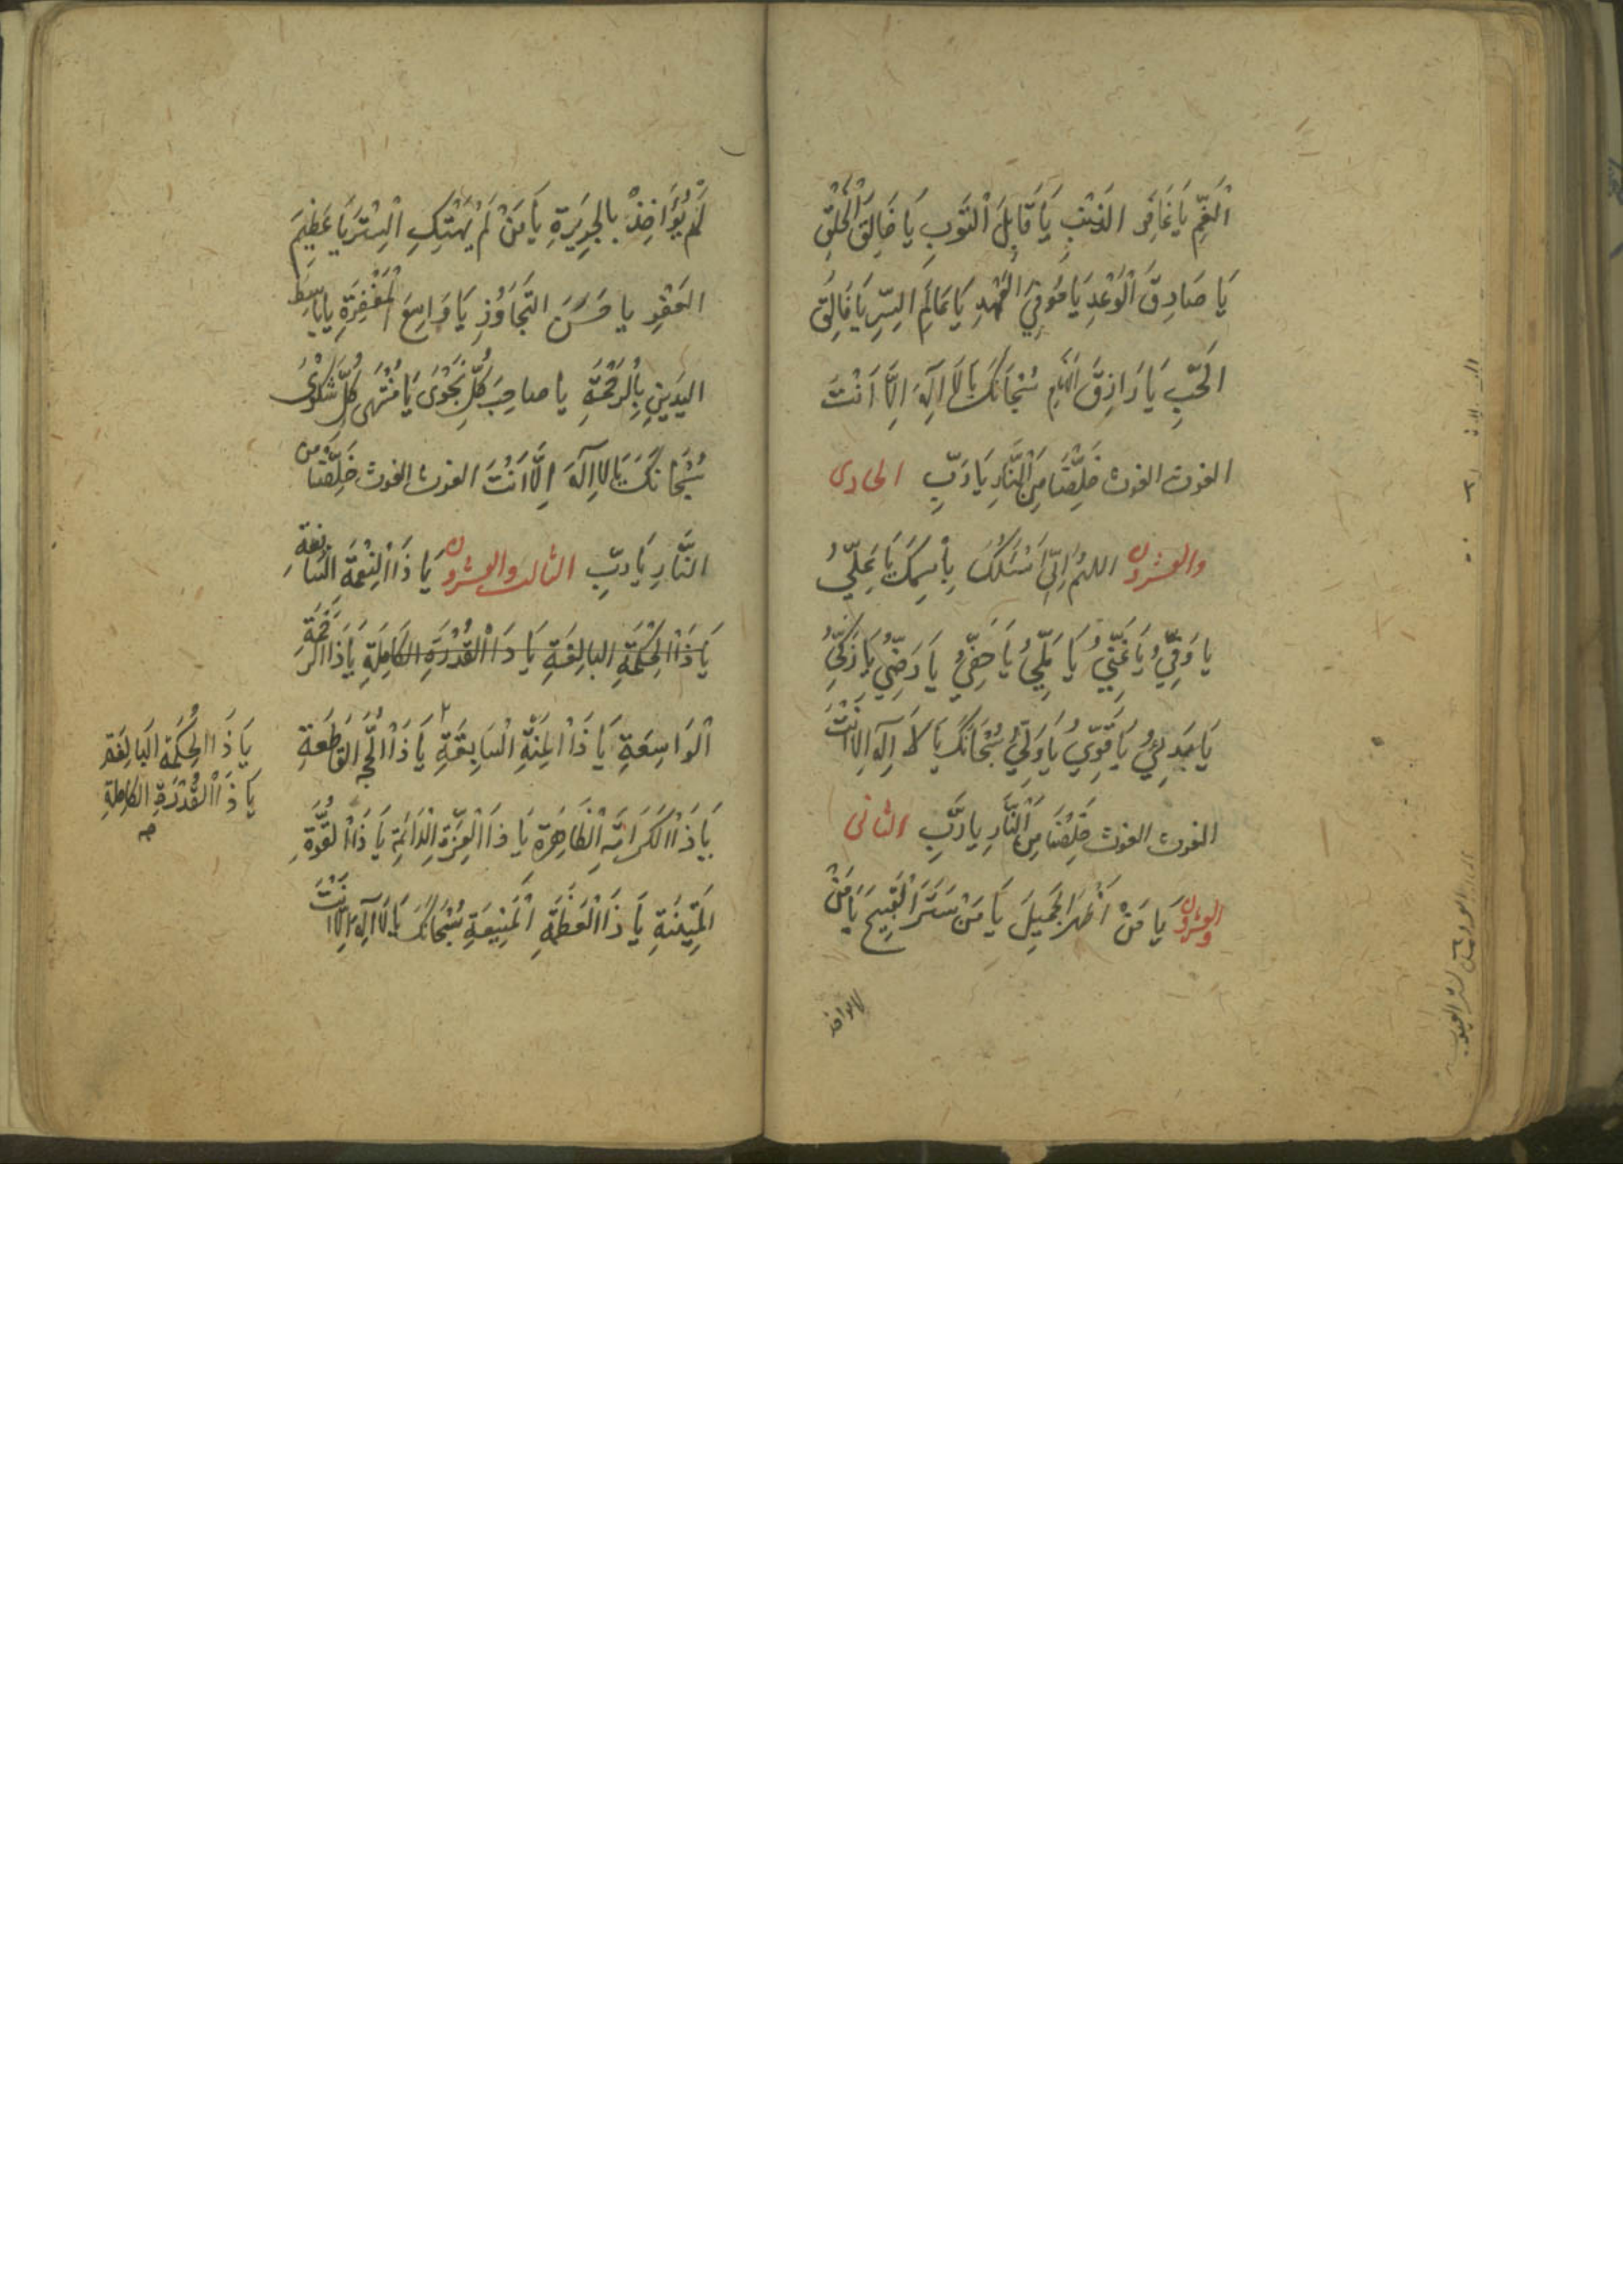 اَلْغَمِّ يَا غَافِرَ الذَنْبِ يَا قَابِلَ اَلْتَوبِ يَا خَالِقَ اَلْخَلْقِ
يَا صَادِقَ اَلْوَعْدِ يَا مُوفِيَ العَهْدِ يَا عَالِمَ السِّرِ يَا فَالِقَ
اَلْحَبِّ يَا رَازِقَ الاَنَامِ سُبْحَانَكَ يَا لَا اِلَهَ اِلَّا اَنْتَ
الغوث الغوث خَلِّصْنَا مِنَ النَّارِ يَا رَبِّ الحادى
والعشرون اللهم اِنِّى اَسْئَلُكَ بِاْسمِكَ يَا عَلِيُّ
يا وَفِيُّ يَا غَنِيُّ يَا مَلِيُّ يَا حَفِيُّ يَا رَضِيُّ يَا زَكِيُّ
يَا بَدِيُّ يَا قَوِيُّ يَا وَلِيُّ سُبْحَانَكَ يَا لَا اِلَهَ اِلَّا اَنْتَ
الغوث الغوث خَلِّصْنَا مِنَ النَّارِ يا رَبِّ الثانى
والعشرون يَا مَنْ اَظْهَرَ الجَمِيلَ يَا مَنْ سَتَرَ اَلْقَبِيحَ يَا مَنْ
لم يواخذ
لَمْ يُؤَاخِذْ بِالجَرِيَرةِ يَا مَنْ لَمْ يَهْتِكِ اَلْسِتْرَ يَا عَظِيمَ
العَفْوِ يا حَسَنَ التَّجَاوُزِ يَا وَاسِعَ اَلْمَغْفِرَةِ يا بَاسِطَ
اليَدَينِ بِاْلرَحْمَةِ يا صاحِبَ كُلِّ نَجْوَى يَا مُنْتَهى كُلِّ شَكْوَىْ
سُبْحَانَكَ يَا لا اِلَهَ اِلَّا اَنْتَ الغوث الغوث خَلِّصْنَا مِنَ
النَّارِ يَا رَبِّ الثالث والعشرون يَا ذَا اَلْنِعْمَةِ السَّابِغَةِ
يَا ذَا اَلْحِكْمَةِ البالِغَةِ يَا ذَا اَلْقُدْرَةِ الكَامِلَةِ يَا ذَا الرَّحْمَةِ
اَلْوَاسِعَةِ يَا ذَا اَلْمِنَّةِ السَابِقَةِ يَا ذَا اَلْحُجَّةِ القَاطِعَةِ
يَا ذَا اَلْكَرَامَةِ اَلْظَاهِرَةِ يَا ذَا اَلْعِزَّةِ اَلْدَائِمَةِ يَا ذَا اَلْقُوَّةِ
اَلْمَتِينَةِ يَا ذَا اَلْعَظَمَةِ اَلْمَنِيعَةِ سُبْحَانَكَ يَا لَا اِلَهَ اِلَّا اَنْتَ
يَا ذَا الحِكْمَةِ البَالِغَةِ
يَا ذَا اَلْقُدْرَةِ الكَامِلَةِ
صح